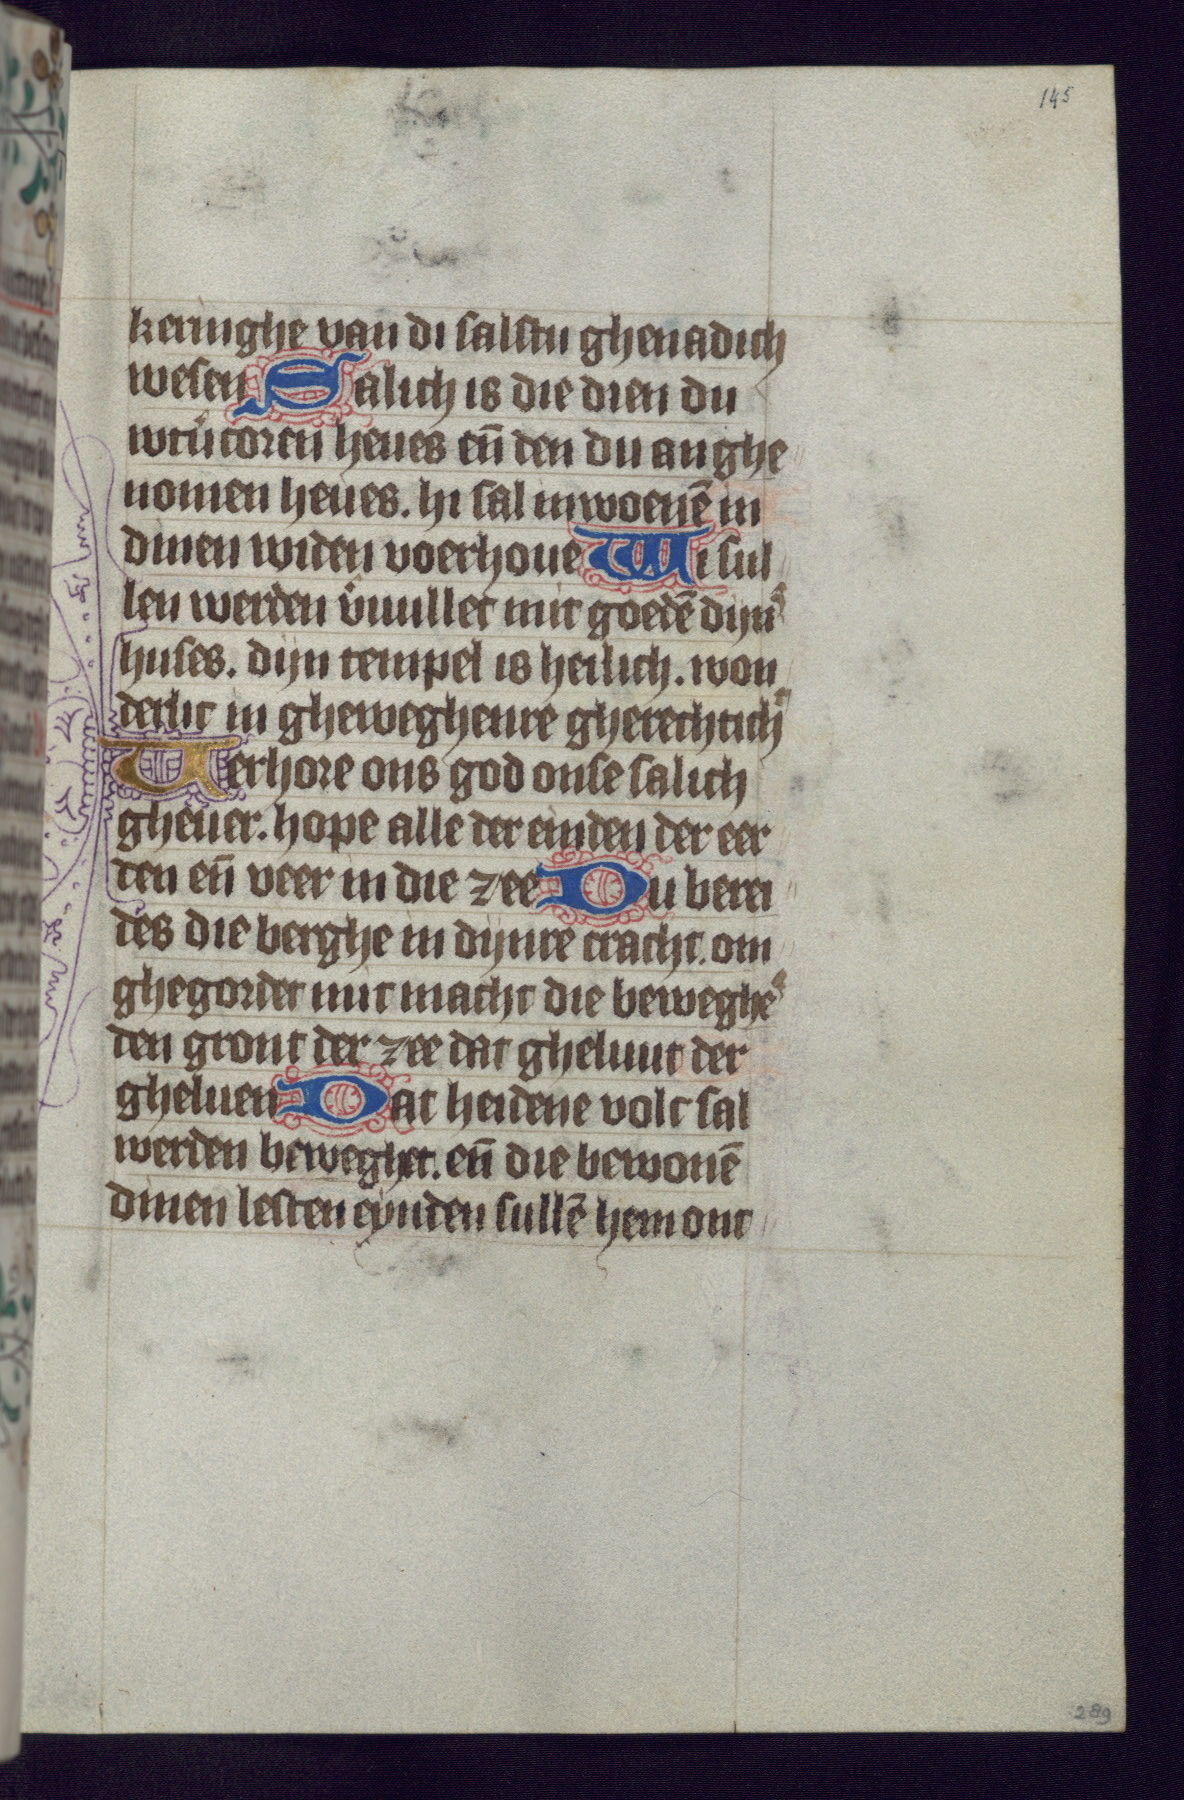 145
keringhe van di salstu ghenadich
wesen Salich is die dien du
wtucoren heues eñ den du anghe
nomen heues. hi sal inwoenē in
dinen widen voerhoue Wi sul
len werden vuullet mit goedē dijns
huses. dijn tempel is heilich. won
derlic in ghewegenre gherechtich
Uerhore ons god onse salich
gheuer. hope alle der einden der eer
den eñ veer in die zee Du berei
des die berghe in dijnre cracht. om
ghegordet mit macht die beweghes
den gront der zee dat gheluut der
gheluen Dat heidene volc sal
werden beweghet. eñ die bewonē
dinen lesten eynden sullē hem ont
289